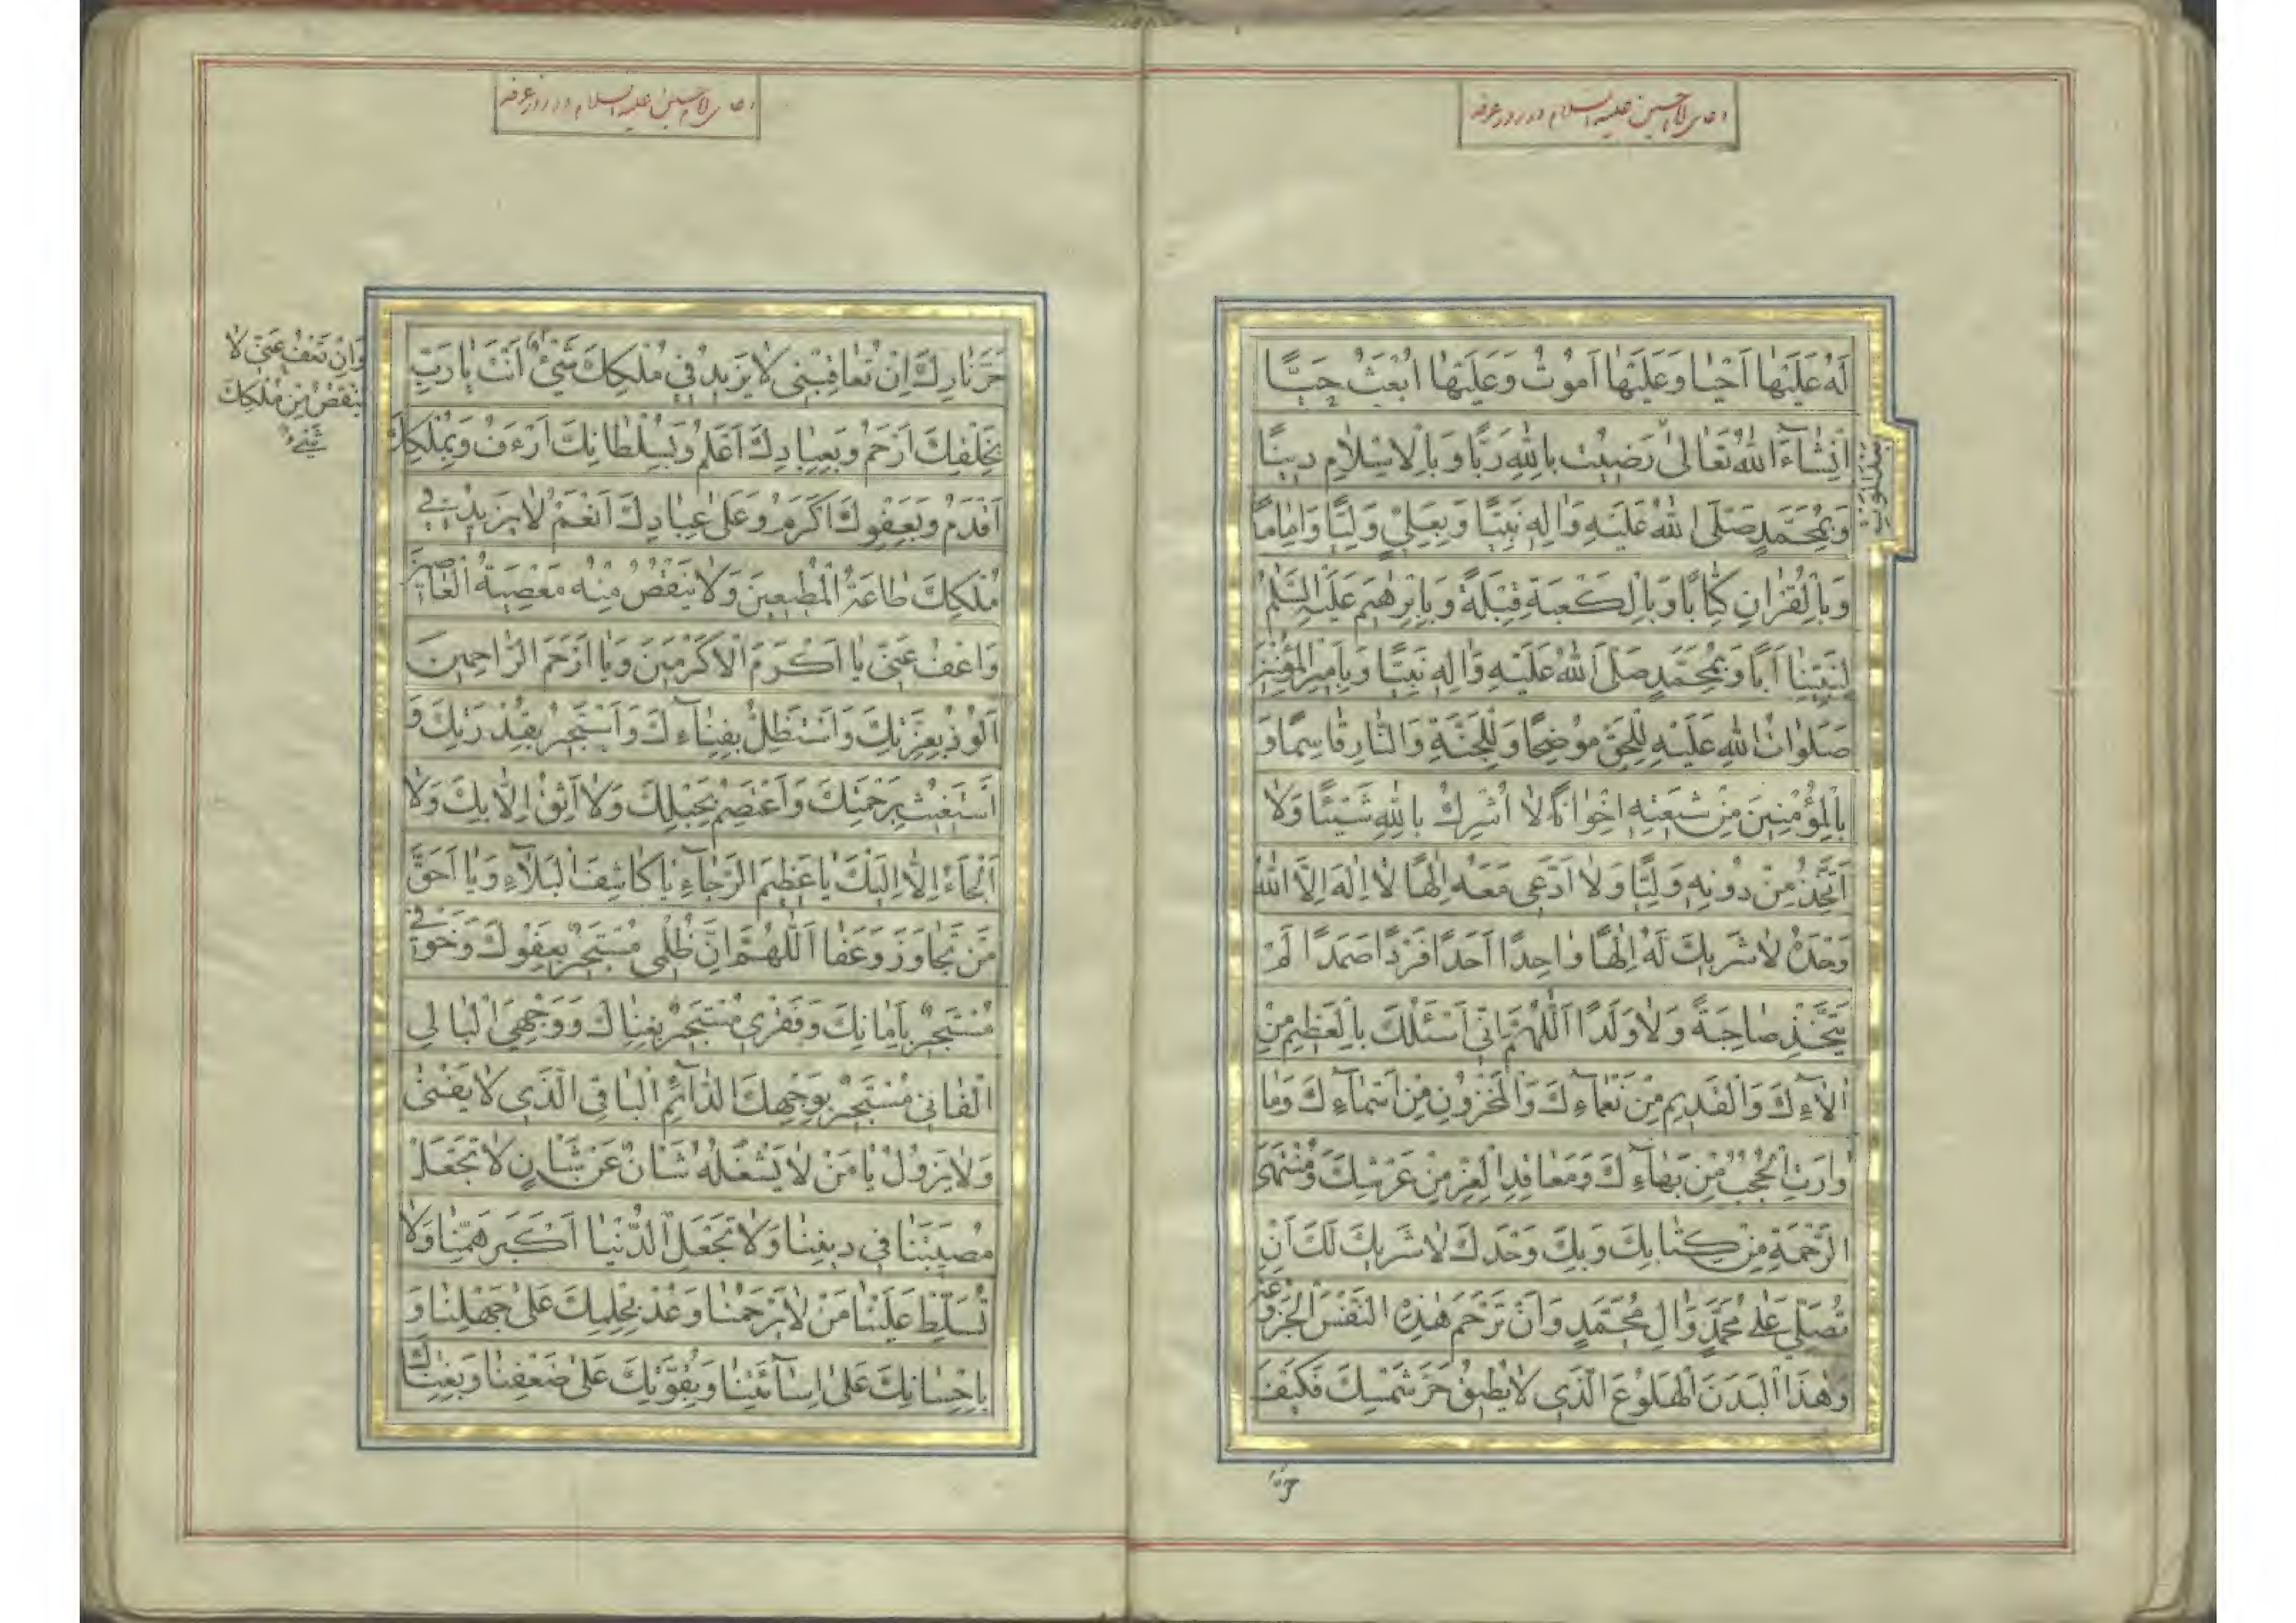 دعای امام حسین علیه السلام در روز عرفه
لَهُ عَلَیْها اَحْیا وَعَلَیْها اَموُتُ وَعَلَیْها اُبْعَثُ حَیًّا
اِنْشآءَ اللهُ تَعالی رَضیتُ بِاللهِ رَبًّا وَبِالْاِسْلامِ دینًا
وَبِمُحَمَّدٍ صَلَّی اللهُ عَلَیْهِ وَالِهِ نَبِیًّا وَبِعَلِیٍّ وَلِیًّا وَاِمامًا
وَبِالْقُرْانِ کِتابًا وَبِالْکَعْبَةِ قِبْلَةً وَبِاِبْرهیمَ عَلَیْهِ السَّلمُ
لِنَبِیِّنا اَبًا وَبِمُحَمَّدٍ صَلَّی اللهُ عَلَیْهِ وَالِهِ نَبِیًّا وَبِاَمیرِ الْمُؤْمِنینَ
صَلَواتُ اللهِ عَلَیْهِ لِلْحَقِّ موُضِحًا وَلِلْجَنَّةِ وَالنّارِ قاسِمًا وَ
بِالْمُؤْمِنینَ مِنْ شیعَتِهِ اِخْوانًا لا اُشْرِكُ بِاللهِ شَیْئًا وَلا
اَتَّخِذُ مِنْ دوُنِهِ وَلِیًّا وَلا اَدَّعی مَعَهُ اِلهًا لا اِلهَ اِلَّا اللهُ
وَحْدَهُ لا شَریكَ لَهُ اِلهًا واحِدًا اَحَدًا فَرْدًا صَمَدًا لَمْ
یَتَّخِذْ صاحِبَةً وَلا وَلَدًا اَللّهُمَّ اِنّی اَسْئَلُكَ بِالْعَظیمِ مِنْ
الآءِكَ وَالْقَدیمِ مِنْ نَعْمآءِكَ وَالْمَخْزوُنِ مِنْ اَسْمآءِكَ وَما
وارَتِ الْحُجُبُ مِنْ بَهآءِكَ وَمَعاقِدِ الْعِزِّ مِنْ عَرْشِكَ وَمُنْتَهَی
الرَّحْمَةِ مِنْ کِتابِكَ وَبِكَ وَحْدَكَ لا شَریكَ لَكَ اَنْ
تُصَلِّیَ عَلی مُحَمَّدٍ وَالِ مُحَمَّدٍ وَاَنْ تَرْحَمَ هذِهِ النَّفْسَ الْجَزوُعَةَ
وَهذَا الْبَدَنَ الْهَلوُعَ الَّذی لا یُطیقُ حَرَّ شَمْسِكَ فَکَیْفَ
دعای امام حسین علیه السلام در روز عرفه
حَرَّ نارِكَ اِنْ تُعاقِبْنی لا یَزیدُ فی مُلْکِكَ شَیْئٌ اَنْتَ یا رَبِّ
وَاِنْ تَعْفُ عَنّی لا
یَنْقُصُ مِنْ مُلْکِكَ
شَیْءٌ
بِخَلْقِكَ اَرْحَمُ وَبِعِبادِكَ اَعْلَمُ وَبِسُلْطانِكَ اَرْءَفُ وَبِمُلْکِكَ
اَقْدَمُ وَبِعَفْوِكَ اَکْرَمُ وَعَلی عِبادِكَ اَنْعَمُ لا یَزیدُ فی
مُلْکِكَ طاعَةُ الْمُطیعینَ وَلا یَنْقُصُ مِنْهُ مَعْصِیَةُ الْعاصینَ
وَاعْفُ عَنّی یا اَکْرَمَ الْاَکْرَمینَ وَیا اَرْحَمَ الرّاحِمینَ
اَلوُذُ بِعِزَّتِكَ وَاَسْتَظِلُّ بِفِنآءِكَ وَاَسْتَجیرُ بِقُدْرَتِكَ وَ
اَسْتَغیثُ بِرَحْمَتِكَ وَاَعْتَصِمُ بِحَبْلِكَ وَلا اَثِقُ اِلّا بِكَ وَلا
اَلْجَاءُ اِلّا اِلَیْكَ یا عَظیمَ الرَّجآءِ یا کاشِفَ الْبَلآءِ وَیا اَحَقَّ
مَنْ تَجاوَزَ وَعَفا اَللّهُمَّ اِنَّ ظُلْمی مُسْتَجیرٌ بِعَفْوِكَ وَخَوْفی
مُسْتَجیرٌ بِاَمانِكَ وَفَقْری مُسْتَجیرٌ بِغِناكَ وَوَجْهِیَ الْبالی
الْفانی مُسْتَجیرٌ بِوَجْهِكَ الدّآئِمِ الْباقی الَّذی لا یَفْنی
وَلا یَزوُلُ یا مَنْ لا یَشْغَلُهُ شَانٌ عَنْ شَانٍ لا تَجْعَلْ
مُصیبَتَنا فی دینِنا وَلا تَجْعَلِ الدُّنْیا اَکْبَرَ هَمِّنا وَلا
تُسَلِّطْ عَلَیْنا مَنْ لا یَرْحَمُنا وَعُدْ بِحِلْمِكَ عَلی جَهْلِنا وَ
بِاِحْسانِكَ عَلی اِسآئَتِنا وَبِقُوَّتِكَ عَلی ضَعْفِنا وَبِغِناكَ